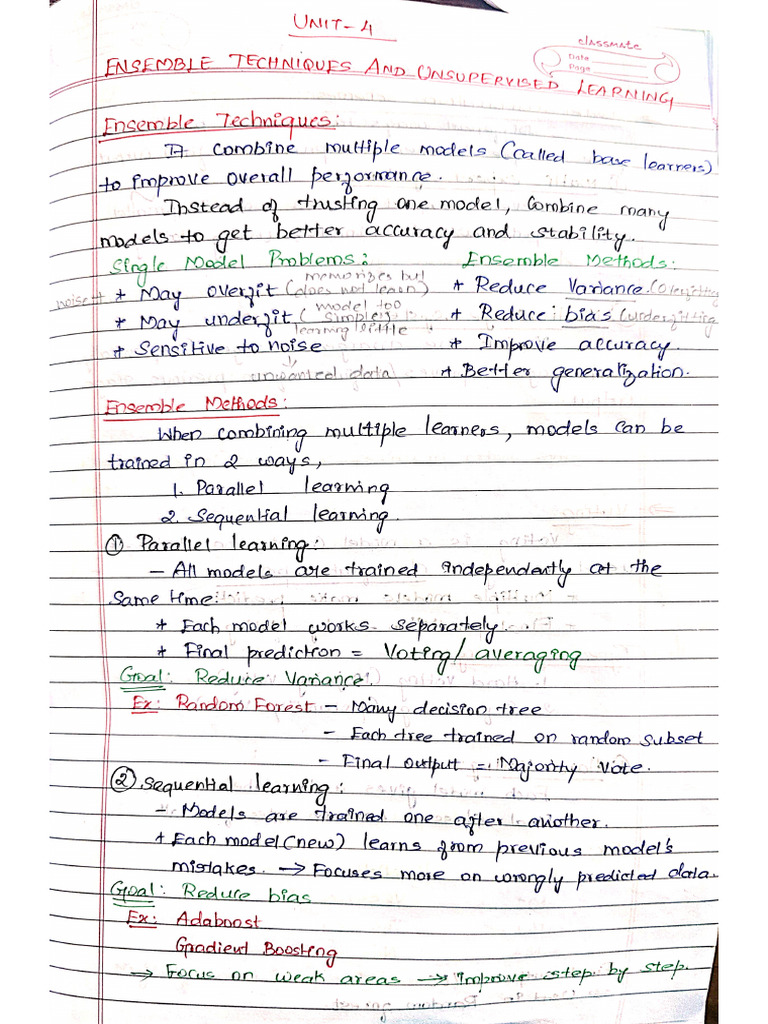 UNIT-4
classmate
Date
Page
ENSEMBLE TECHNIQUES AND UNSUPERVISED LEARNING
Ensemble Techniques:
It combine multiple models (called base learners)
to improve overall performance.
Instead of trusting one model, combine many
models to get better accuracy and stability.
Single Model Problems: Ensemble Methods:
noise + * May overfit (memorizes but does not learn) * Reduce Variance (overfitting
* May underfit (model too simple, learning little) * Reduce bias (underfitting
* Sensitive to noise * Improve accuracy.
unwanted data * Better generalization.
Ensemble Methods:
When combining multiple learners, models can be
trained in 2 ways,
1. Parallel learning
2. Sequential learning.
① Parallel learning:
- All models are trained independently at the
same time.
* Each model works separately.
* Final prediction = Voting/averaging
Goal: Reduce Variance
Ex: Random Forest - Many decision tree
- Each tree trained on random subset
- Final output = Majority vote.
② Sequential learning:
- Models are trained one after another.
* Each model (new) learns from previous model's
mistakes. → Focuses more on wrongly predicted data.
Goal: Reduce bias
Ex: Adaboost
Gradient Boosting
→ Focus on weak areas → improve step by step.